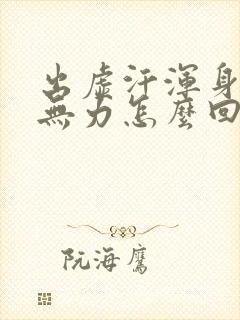 出虛汗渾身
無力怎麼回
阮海鷹